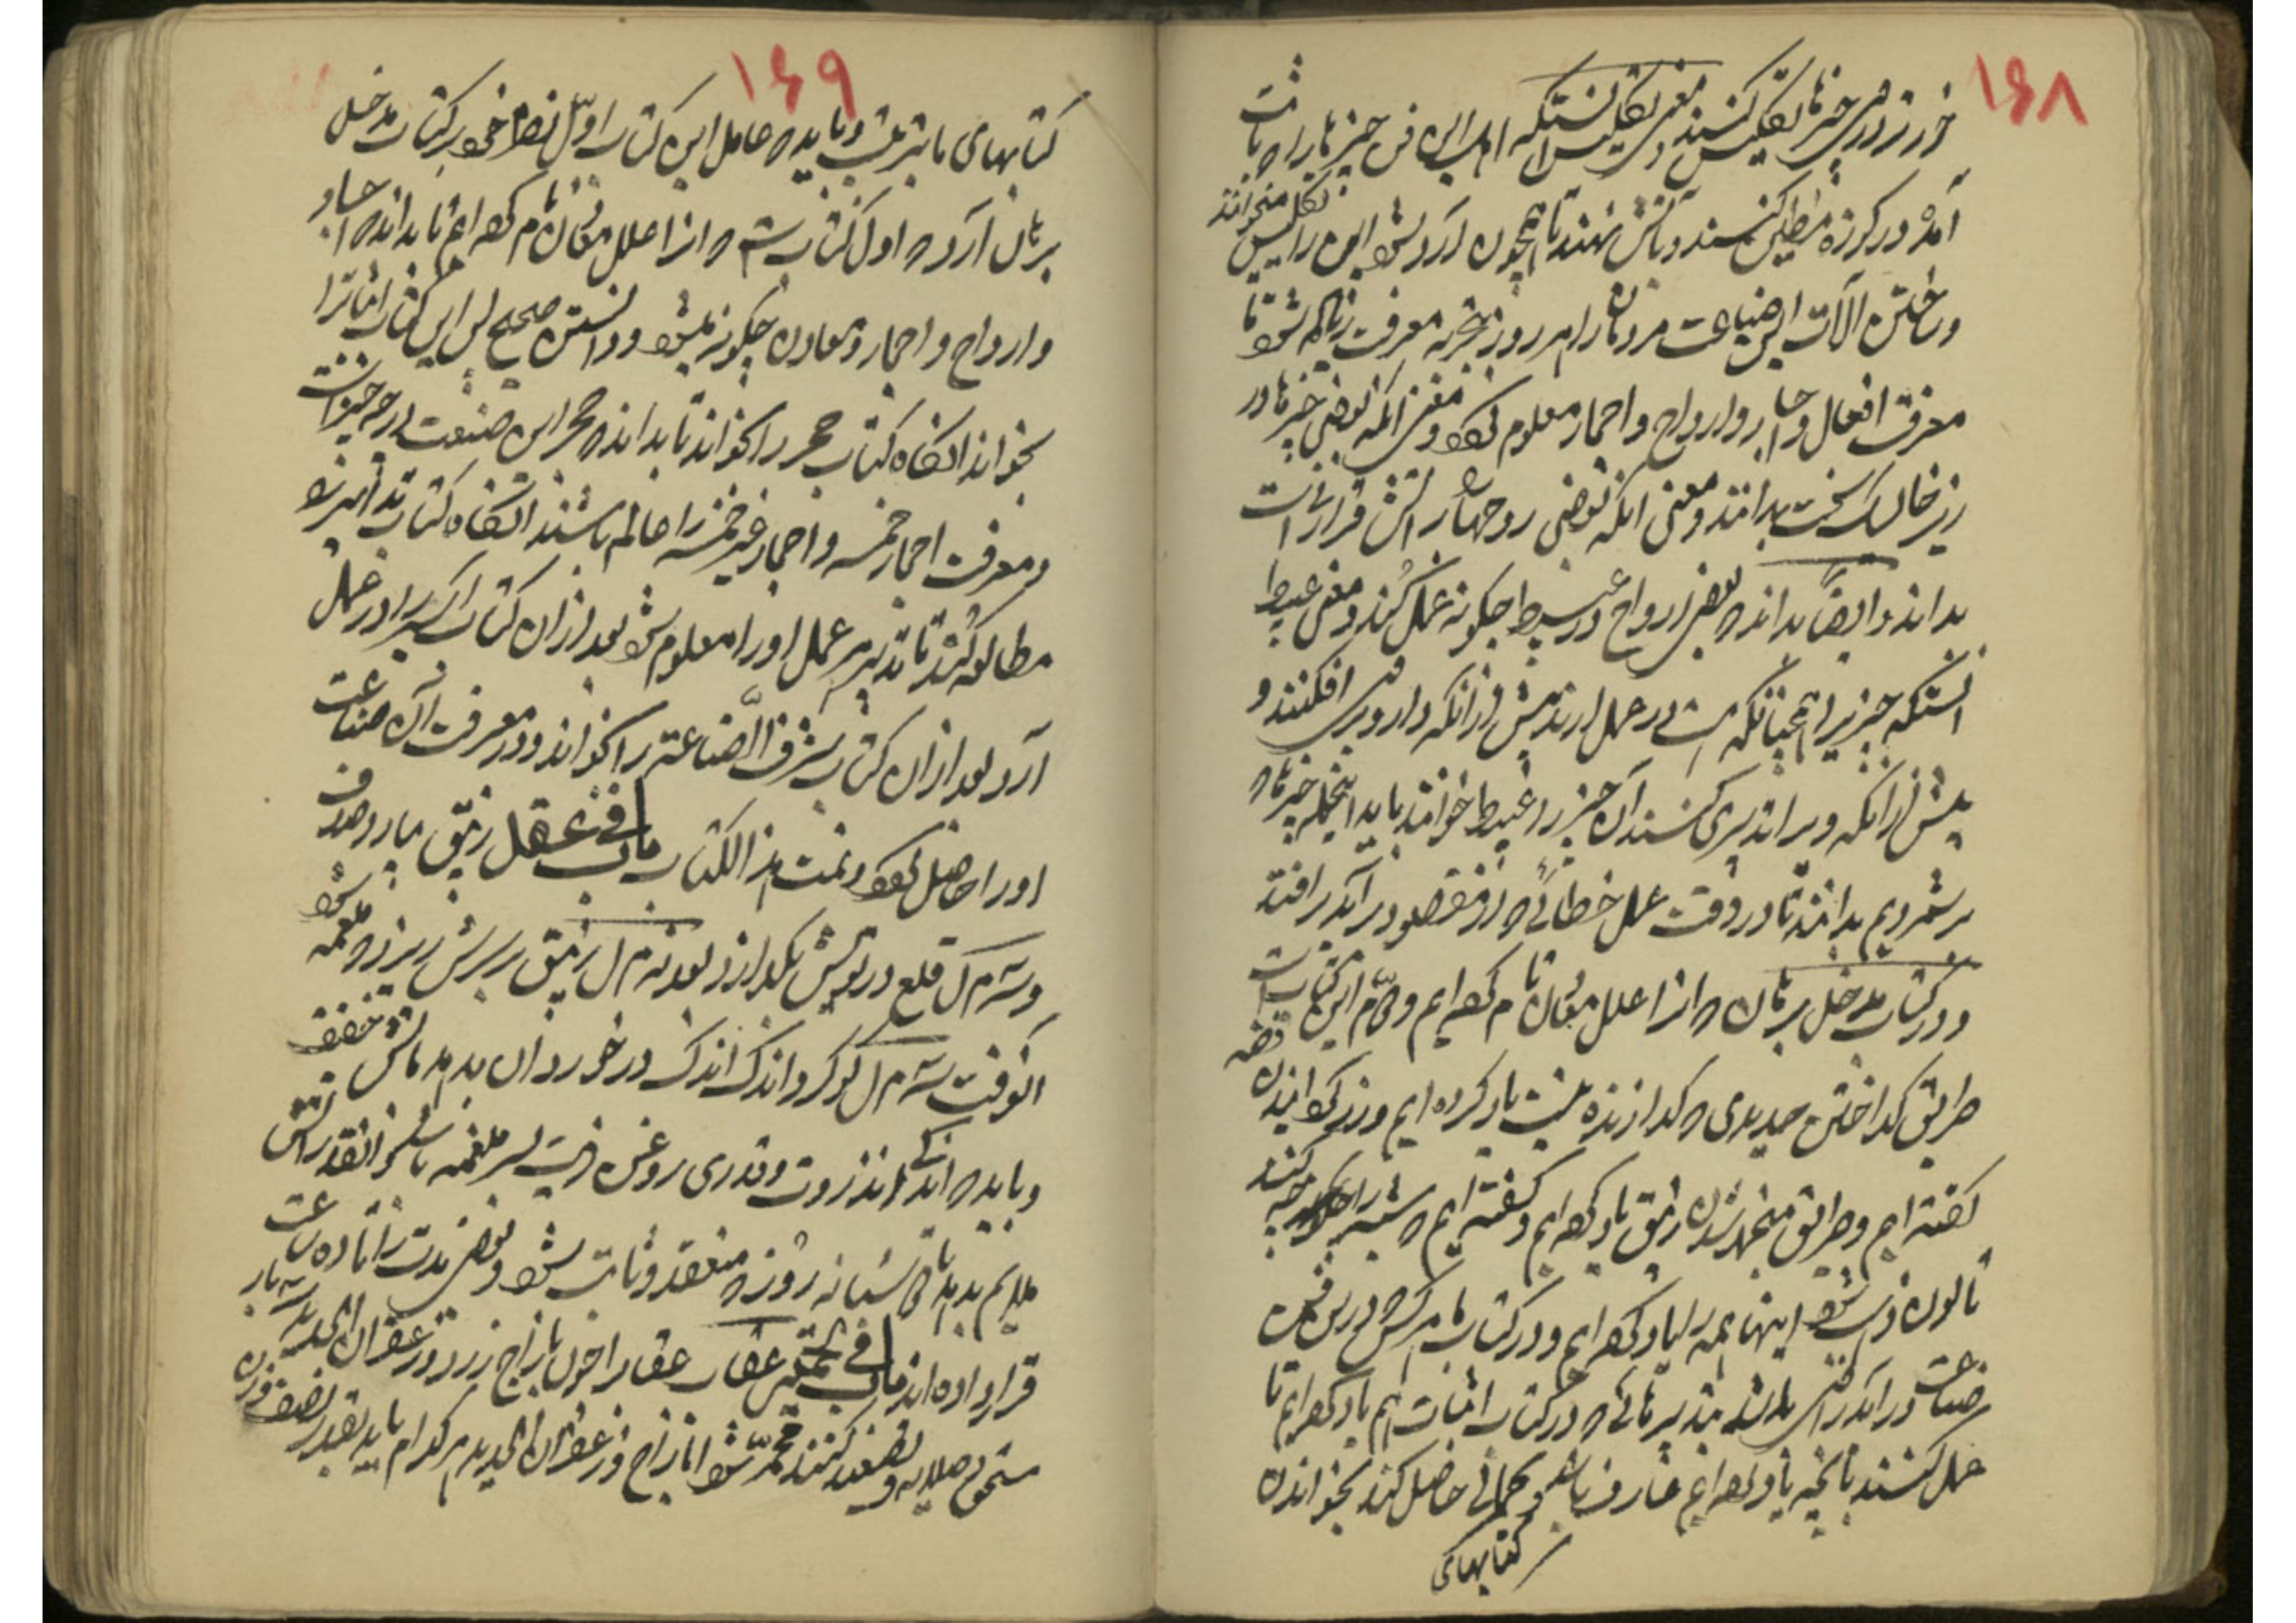 ۱۶۸
خورند در وی چیزها تکلیس کنند و معنی تکلیس آنستکه اهل این فن چیزها را
آمده در کوزه مطین کنند و بآتش نهند تا همچون آرد شود این را تکلیس میخوانند
و ساختن آلات این صناعت مردمان را هر روز بتجربه معرفت زیاده شود تا
معرفت افعال و اجساد و ارواح و احجار معلوم کند و معنی آنکه بعضی چیزها در
زیر خاک سخت بدانند و معنی آنکه بعضی روحها را آتش قرار
بداند و ایضا بداند که بعضی ارواح در عبیط چگونه عمل کنند و معنی عبیط
آنستکه چیزیرا همچنانکه هست در عمل آرند پیش از آنکه دارو بر وی افکنند و
پیش از آنکه ویرا تدبیری کنند آن چیز را عبیط خوانند باید اینجمله چیزها که
برشمردیم بدانند تا در وقت عمل خطائی که از مقصود برآید نیفتد
و در کتاب مدخل برهان که از اعلل معادن نام کرده ایم و این کتاب
طریق گداختن حدیدی که گدازنده نیست یاد کرده ایم و زر گردانیدن نقره
گفته ایم و طریق منجمد شدن زیبق یاد کرده ایم و گفته ایم که شبه را چه کنند
تا لون ذهب شود اینها همه را یاد کرده ایم و در کتاب ما هر کس که درین فن
صناعت درآید باشد بتدبیرهائی که در کتاب اثبات هم یاد کرده ایم تا
عمل کنند بآنچه یاد کرده ایم عارف باشد و کمالی حاصل کند بخواندن
کتابهای
۱۶۹
کتابهای ما بترتیب و باید که عامل این کتاب اول نظر خود بر کتاب مدخل
برهان آرد که اول کتاب است که از اعلل معادن نام کرده ایم تا بداند که اجساد
و ارواح و احجار و معادن چگونه میشود و دانستن صحیح پس این کتاب اثبات را
بخواند آنگاه کتاب حجر را بخواند تا بداند که حجر این صنعت در چه چیز است
و معرفت احجار خمسه و احجار غیر خمسه را عالم باشند آنگاه کتاب تدابیر را
مطالعه کند تا تدبیر عمل او را معلوم شود بعد از آن کتاب اکسیر را در عمل
آرد بعد از آن کتاب شرف الصناعة را بخواند و در معرفت آن صناعت
او را حاصل گردد و تمت هذا الکتاب باب فی عقل زیبق بیارد صدف
و سه م آل قلعی در بوتیش بگدازد بعد نه م آل زیبق بر سرش ریزد که ملغمه شود
آنوقت سه م آل گوگرد اندک اندک در خورد آن بدمد بآتش خفیف
و باید که اندکی انزروت و قدری روغن زیت بسر ملغمه باشد و آنقدر آتش
ملایم بدمد تا شبانه روز که منعقد و ثابت شود و بعضی مدت را تا ده ساعت
قرار داده اند باب فی تحمیر عقاب عقاب را چون بازاج زرد و زعفران الحدید سه بار
سحق و صلایه و تصعید کنند محمر شود اما زاج و زعفران الحدید هر کدام باید بقدر نصف وزن